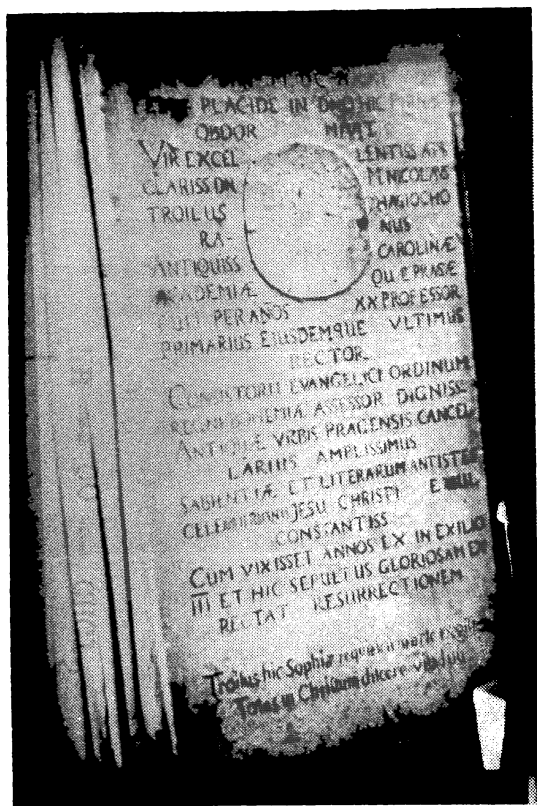 PLACIDE IN DNO HIC
OBDOR MIVIT
VIR EXCEL LENTISS AC
CLARISS DN M NICOLAUS
TROILUS HAGIOCHO
RA- NUS
ANTIQUISS CAROLINÆ
ACADEMIÆ QUÆ PRAGÆ
FUIT PER AÑOS XX PROFESSOR
PRIMARIUS EIUSDEMQUE VLTIMUS
RECTOR.
CONSISTORII EVANGELICI ORDINUM
REGNI BOHEMIÆ ASSESSOR DIGNISS
ANTIQUÆ VRBIS PRAGENSIS CANCEL
LARIUS AMPLISSIMUS
SAPIENTIÆ ET LITERARUM ANTISTES
JESU CHRISTI EXUL
CONSTANTISS
CUM VIXISSET ANNOS EX IN EXILIO
III ET HIC SEPULTUS GLORIOSAM EX
PECTAT RESURRECTIONEM
Troilus hic Sophiæ
Totus in Christum dicere